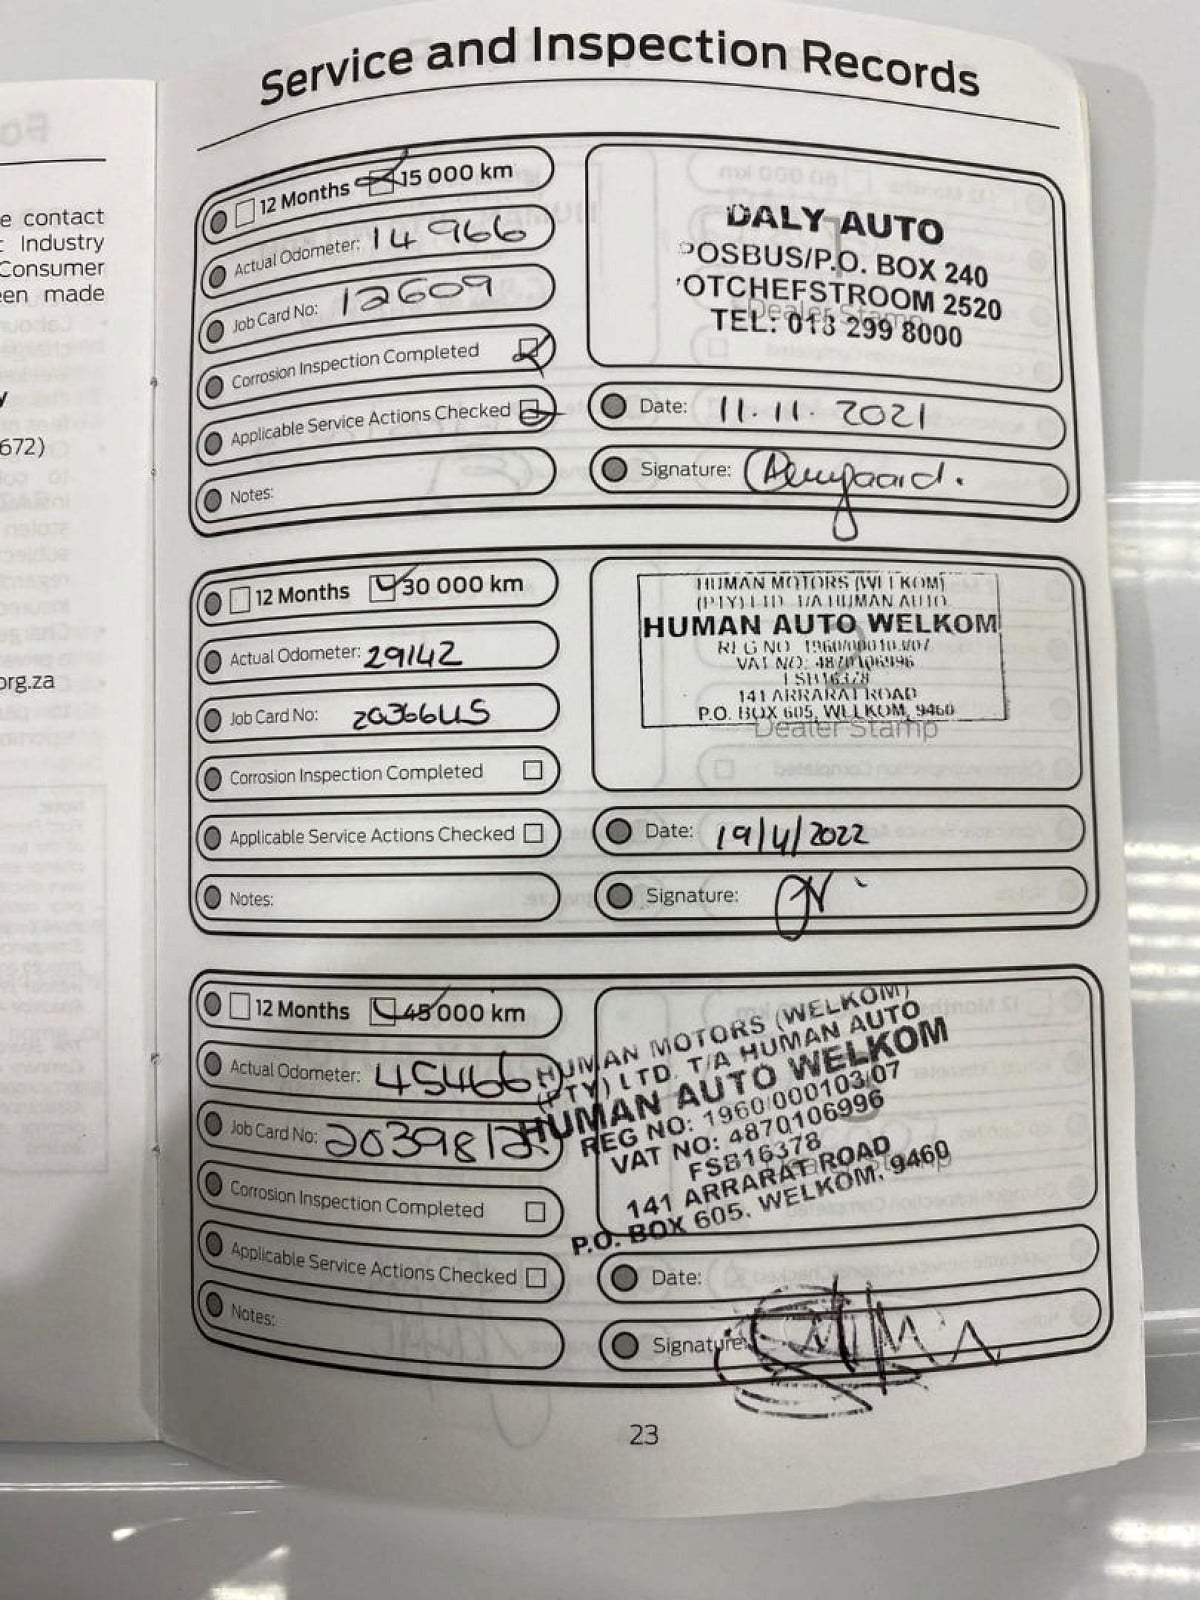 e contact
Industry
Consumer
een made
y
672)
org.za
Service and Inspection Records
12 Months 15 000 km
Actual Odometer: 14 966
Job Card No: 12609
Corrosion Inspection Completed
Applicable Service Actions Checked
Notes:
DALY AUTO
POSBUS/P.O. BOX 240
OTCHEFSTROOM 2520
Dealer Stamp
TEL: 018 299 8000
Date: 11.11.2021
Signature:
12 Months 30 000 km
Actual Odometer: 29142
Job Card No:
Corrosion Inspection Completed
Applicable Service Actions Checked
Notes:
HUMAN MOTORS (WELKOM)
(PTY) LTD. T/A HUMAN AUTO
HUMAN AUTO WELKOM
REG NO 1960/000103/07
VAT NO: 4870106996
FSB16378
141 ARRARAT ROAD
P.O. BOX 605, WELKOM, 9460
Dealer Stamp
Date: 19/4/2022
Signature:
12 Months 45 000 km
Actual Odometer: 45466
Job Card No:
Corrosion Inspection Completed
Applicable Service Actions Checked
Notes:
HUMAN MOTORS (WELKOM)
(PTY) LTD. T/A HUMAN AUTO
HUMAN AUTO WELKOM
REG NO: 1960/000103/07
VAT NO: 4870106996
FSB16378
141 ARRARAT ROAD
P.O. BOX 605, WELKOM, 9460
Date:
Signature:
23